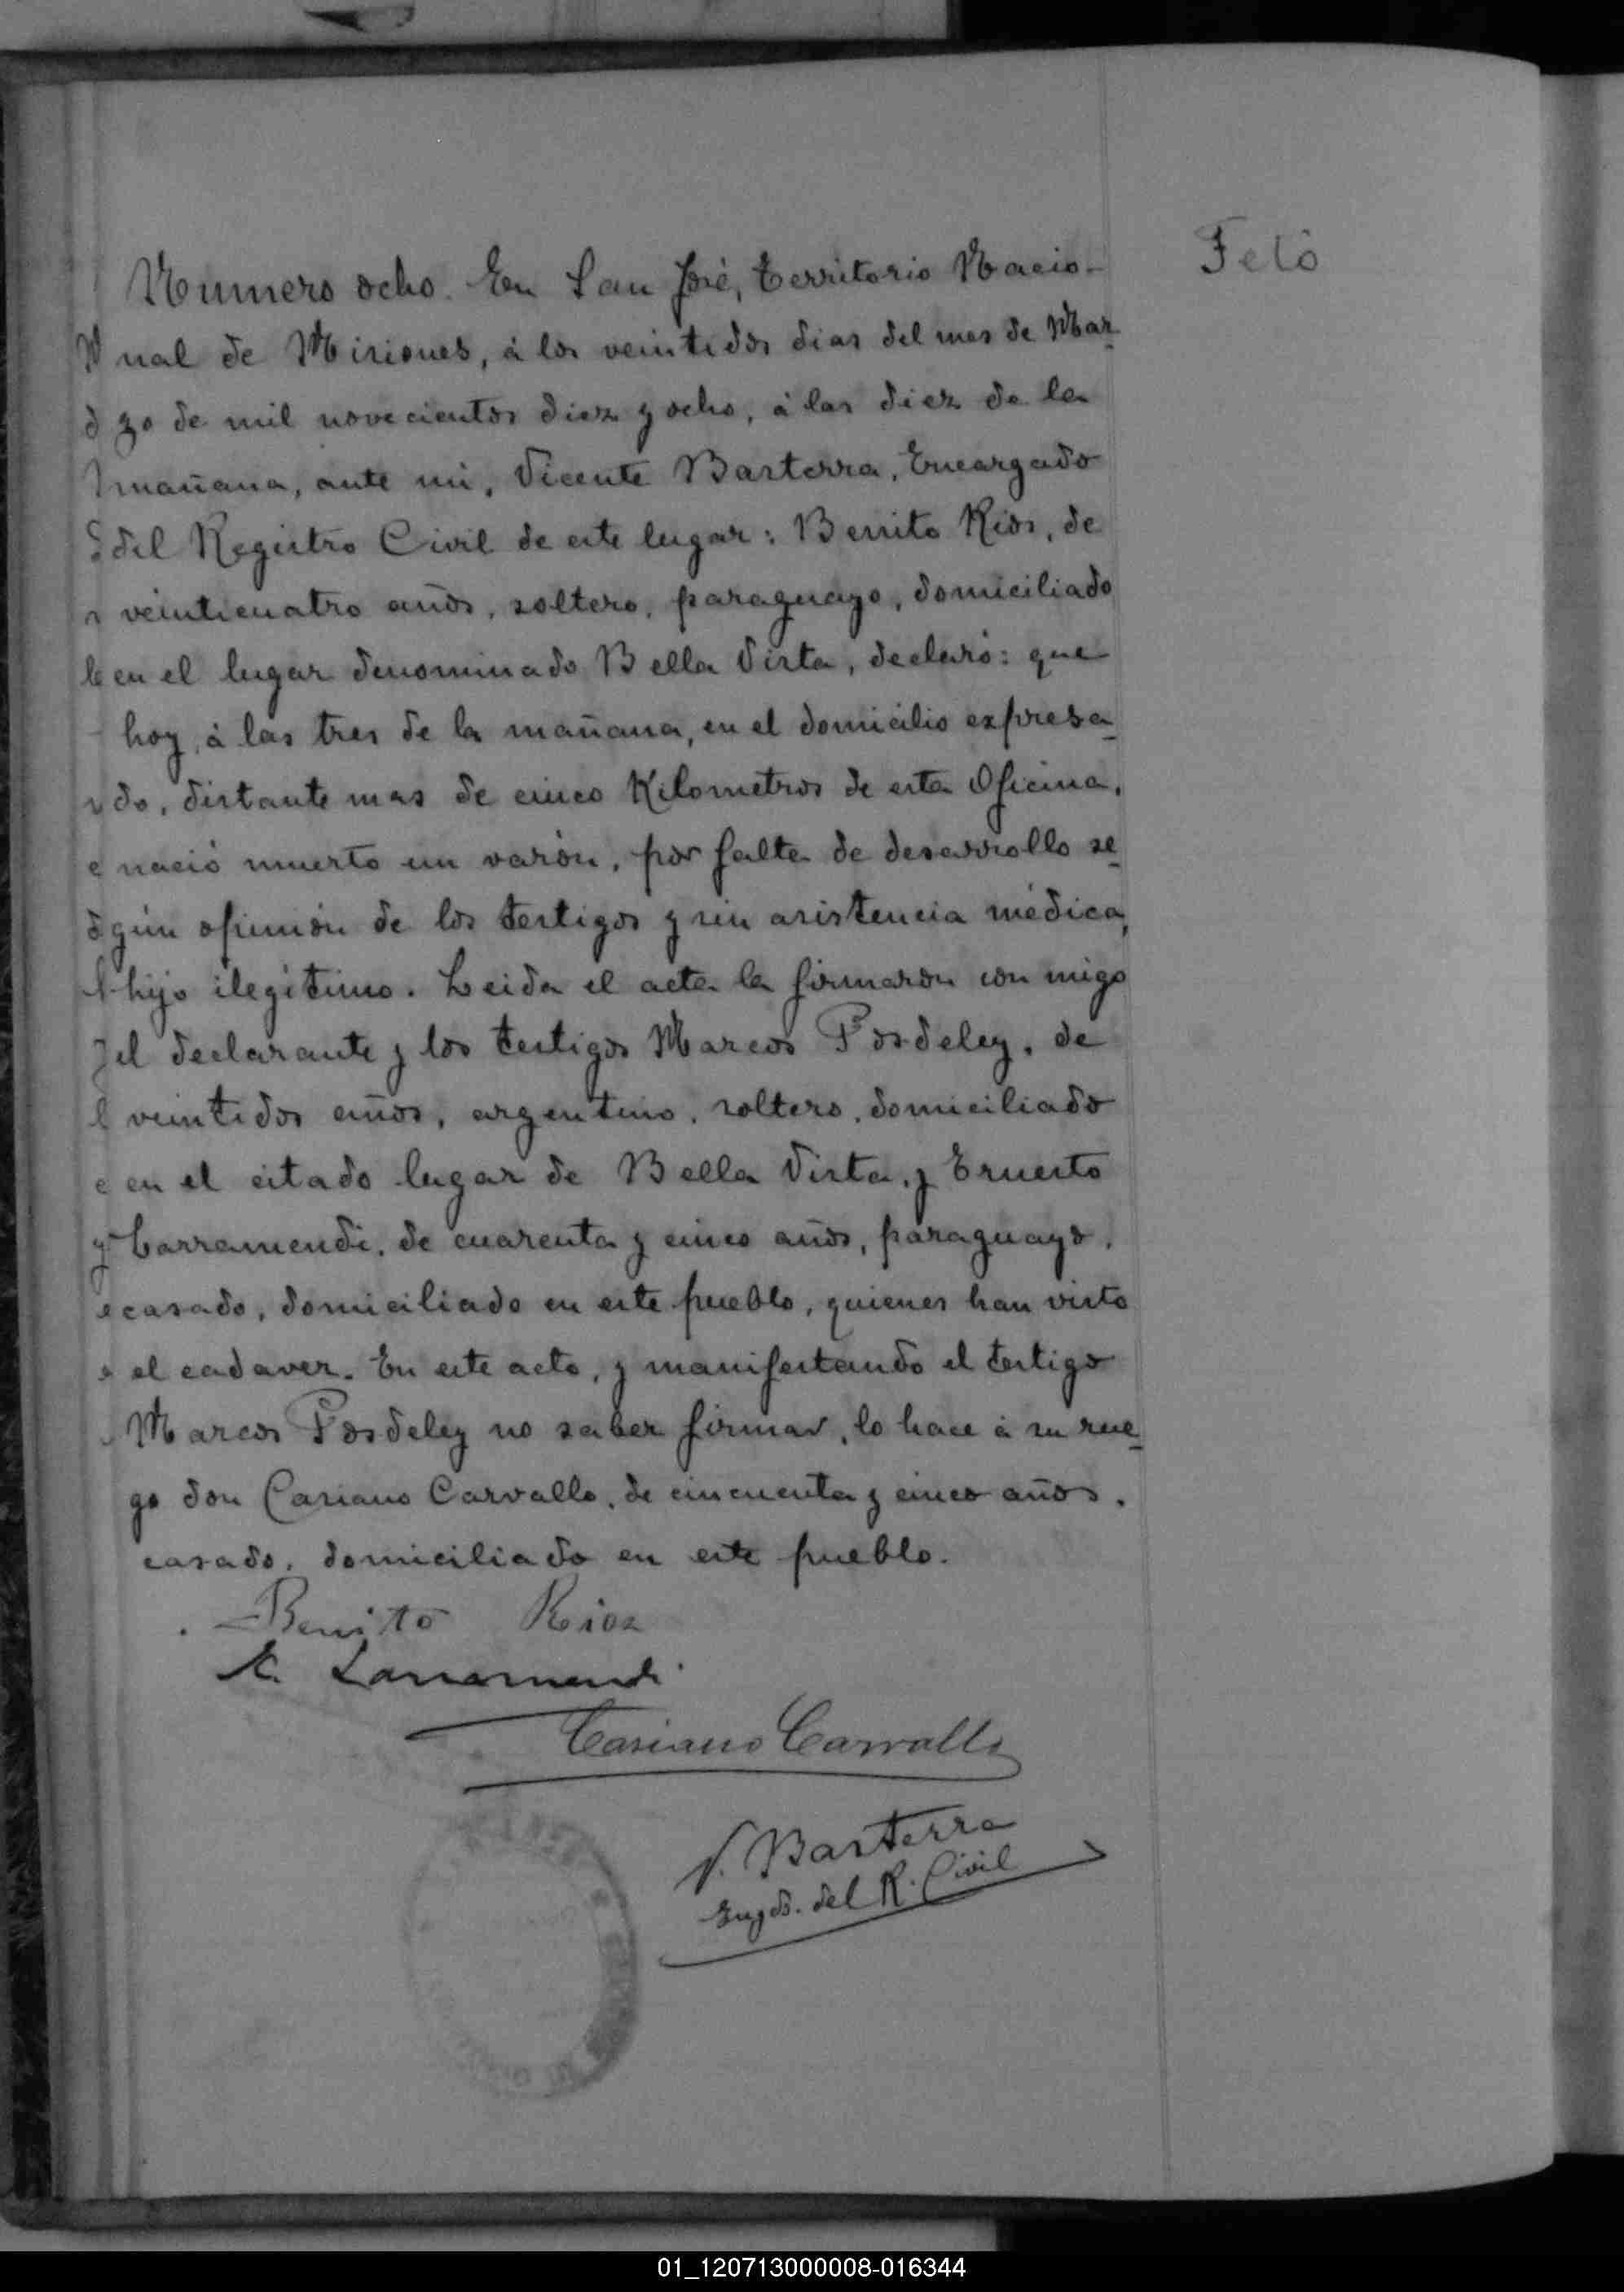 Numero ocho. En San José, Territorio Nacio-
Fetò
nal de Misiones, á los veintidos dias del mes de Mar-
zo de mil novecientos diez y ocho, á las diez de la
mañana, ante mi, Vicente Basterra, Encargado
del Registro Civil de este lugar: Benito Rios, de
veinticuatro años, soltero, paraguayo, domiciliado
en el lugar denominado Bella Vista, declaró: que
hoy, á las tres de la mañana, en el domicilio expresa-
do, distante mas de cinco Kilometros de esta Oficina,
nació muerto un varón, por falta de desarrollo se-
gún opinión de los testigos y sin asistencia médica,
hijo ilegitimo. Leida el acta la firmaron con migo
el declarante y los testigos Marcos Posdeley, de
veintidos años, argentino, soltero, domiciliado
en el citado lugar de Bella Vista, y Ernesto
Larramendi, de cuarenta y cinco años, paraguayo,
casado, domiciliado en este pueblo, quienes han visto
el cadaver. En este acto, y manifestando el testigo
Marcos Posdeley no saber firmar, lo hace á su rue-
go don Casiano Carvallo, de cincuenta y cinco años,
casado, domiciliado en este pueblo.
Benito Rios
E. Larramendi
Casiano Carvallo
V. Basterra
Engdo. del R. Civil
01_120713000008-016344